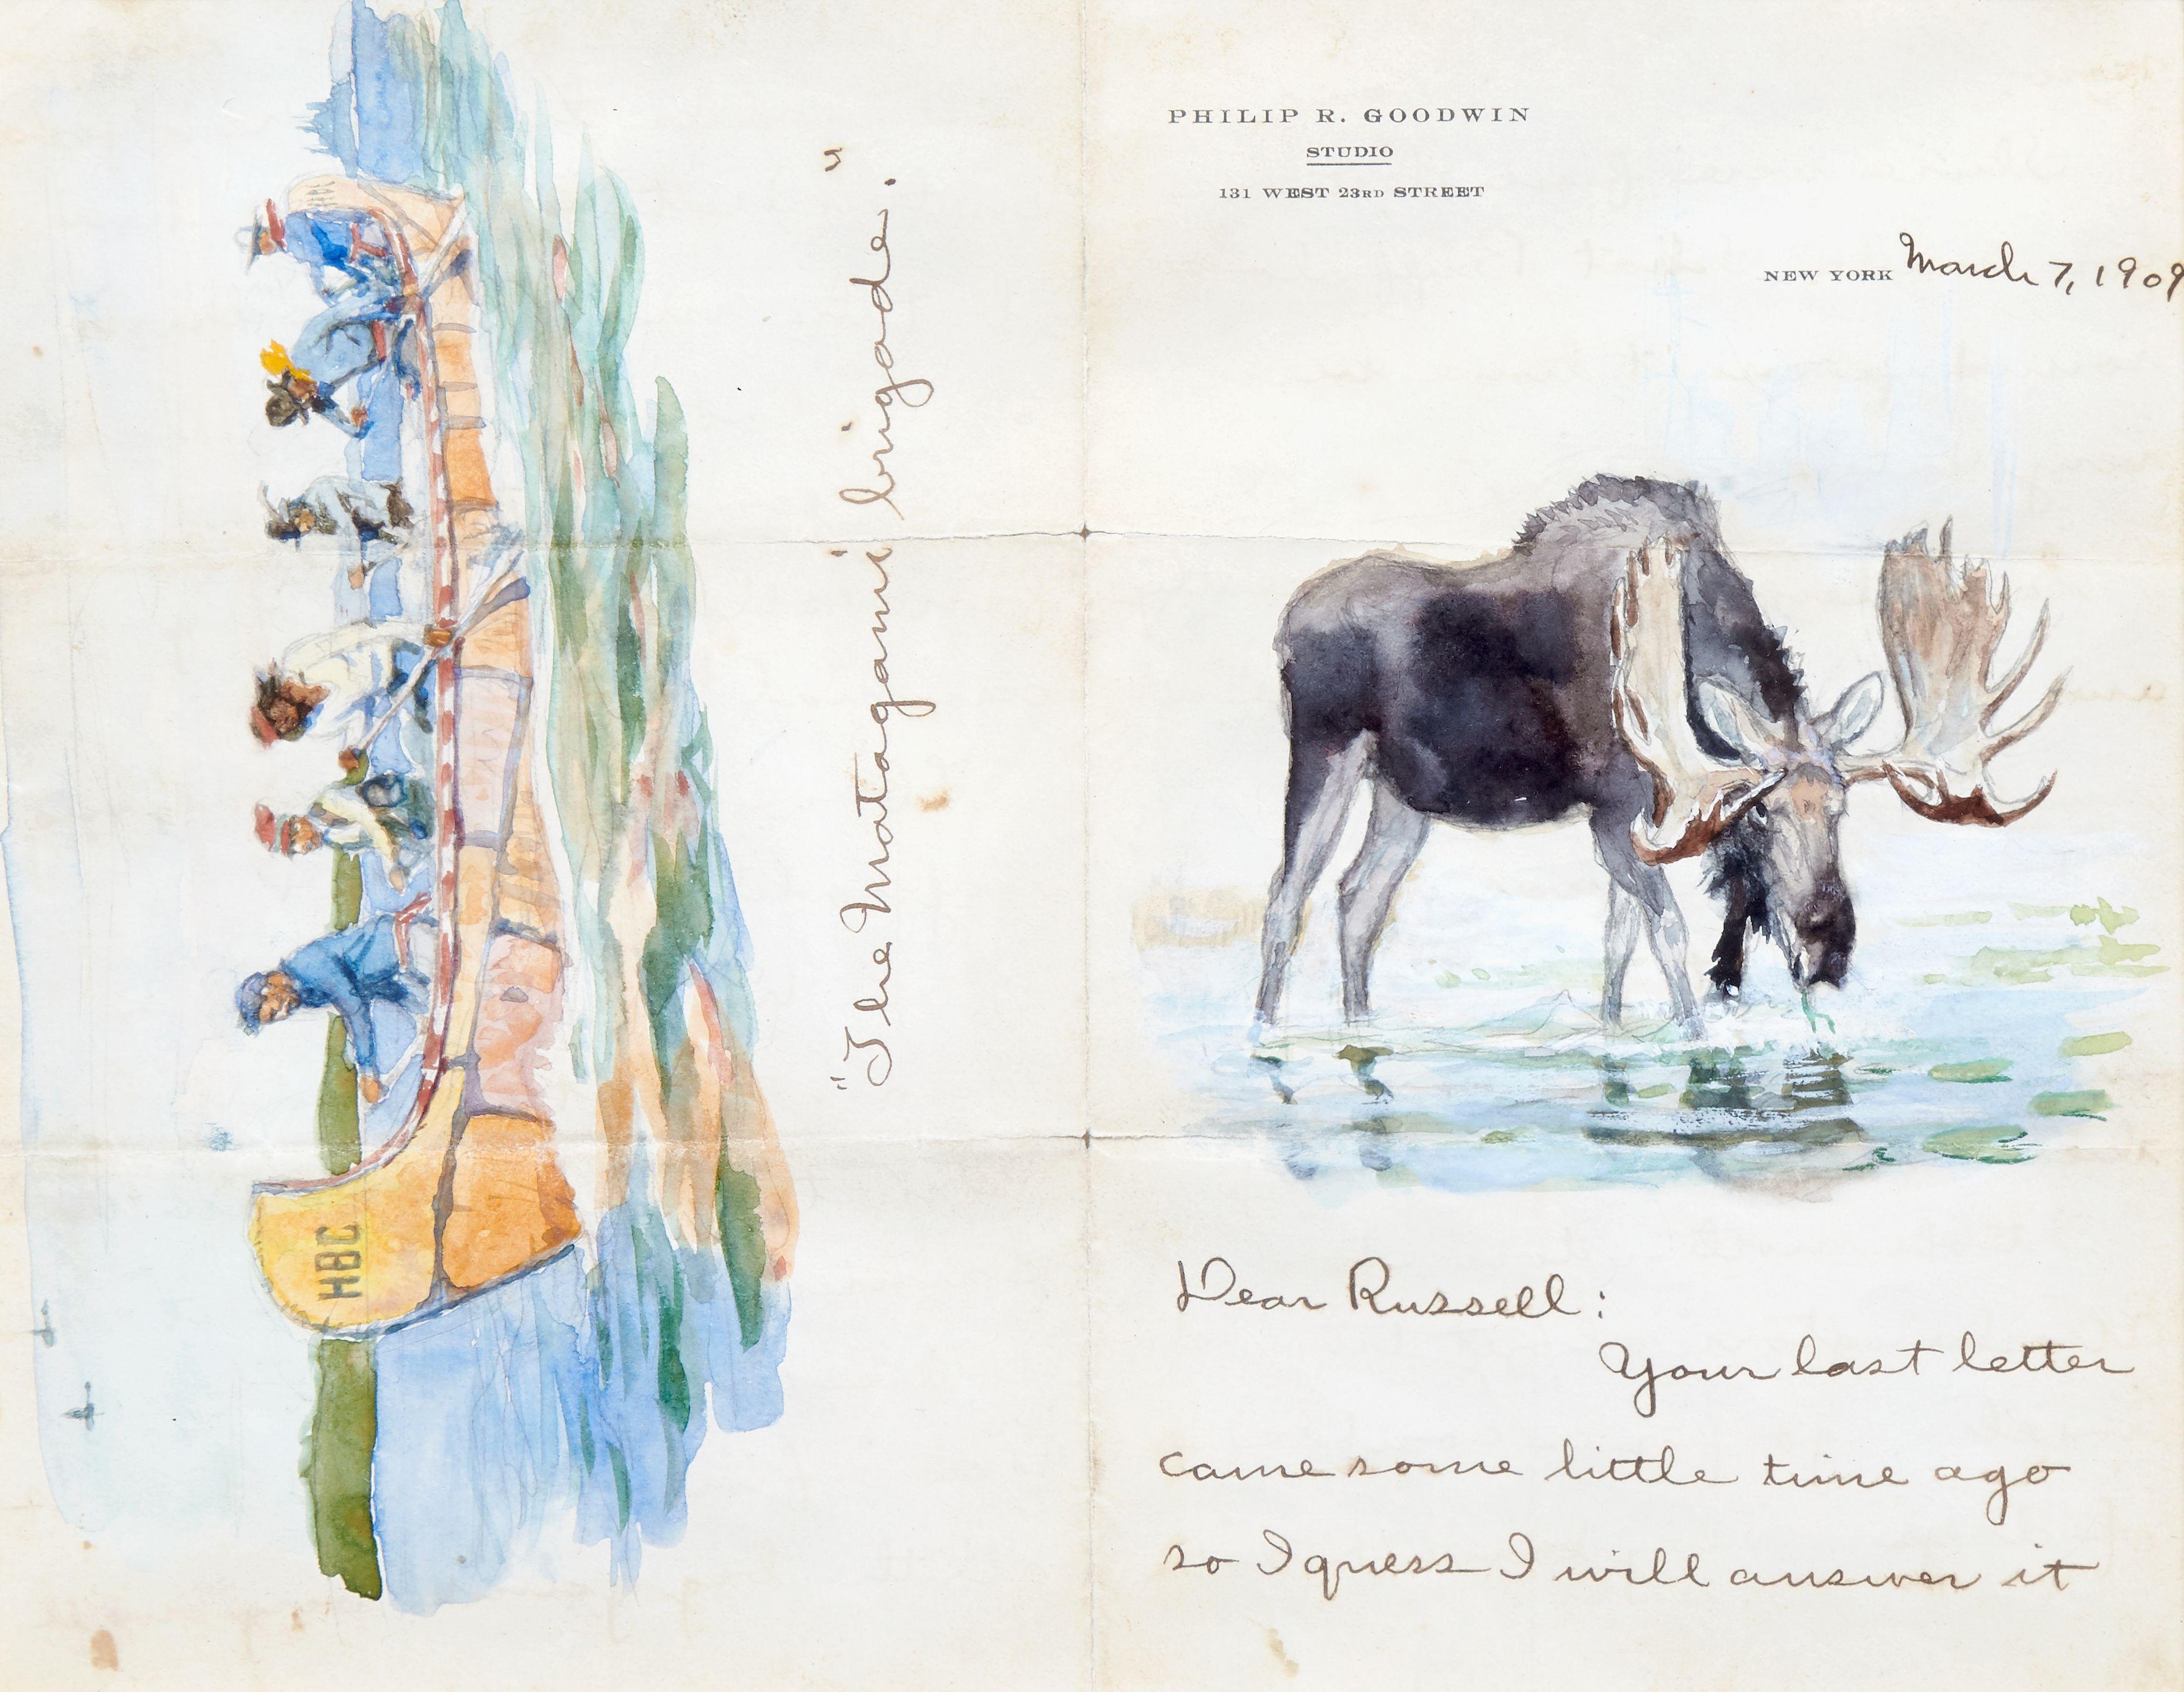 PHILIP R. GOODWIN
STUDIO
131 WEST 23RD STREET
NEW YORK March 7, 1909
Dear Russell:
Your last letter
came some little time ago
so I guess I will answer it
"The Matagami brigade."
HBC